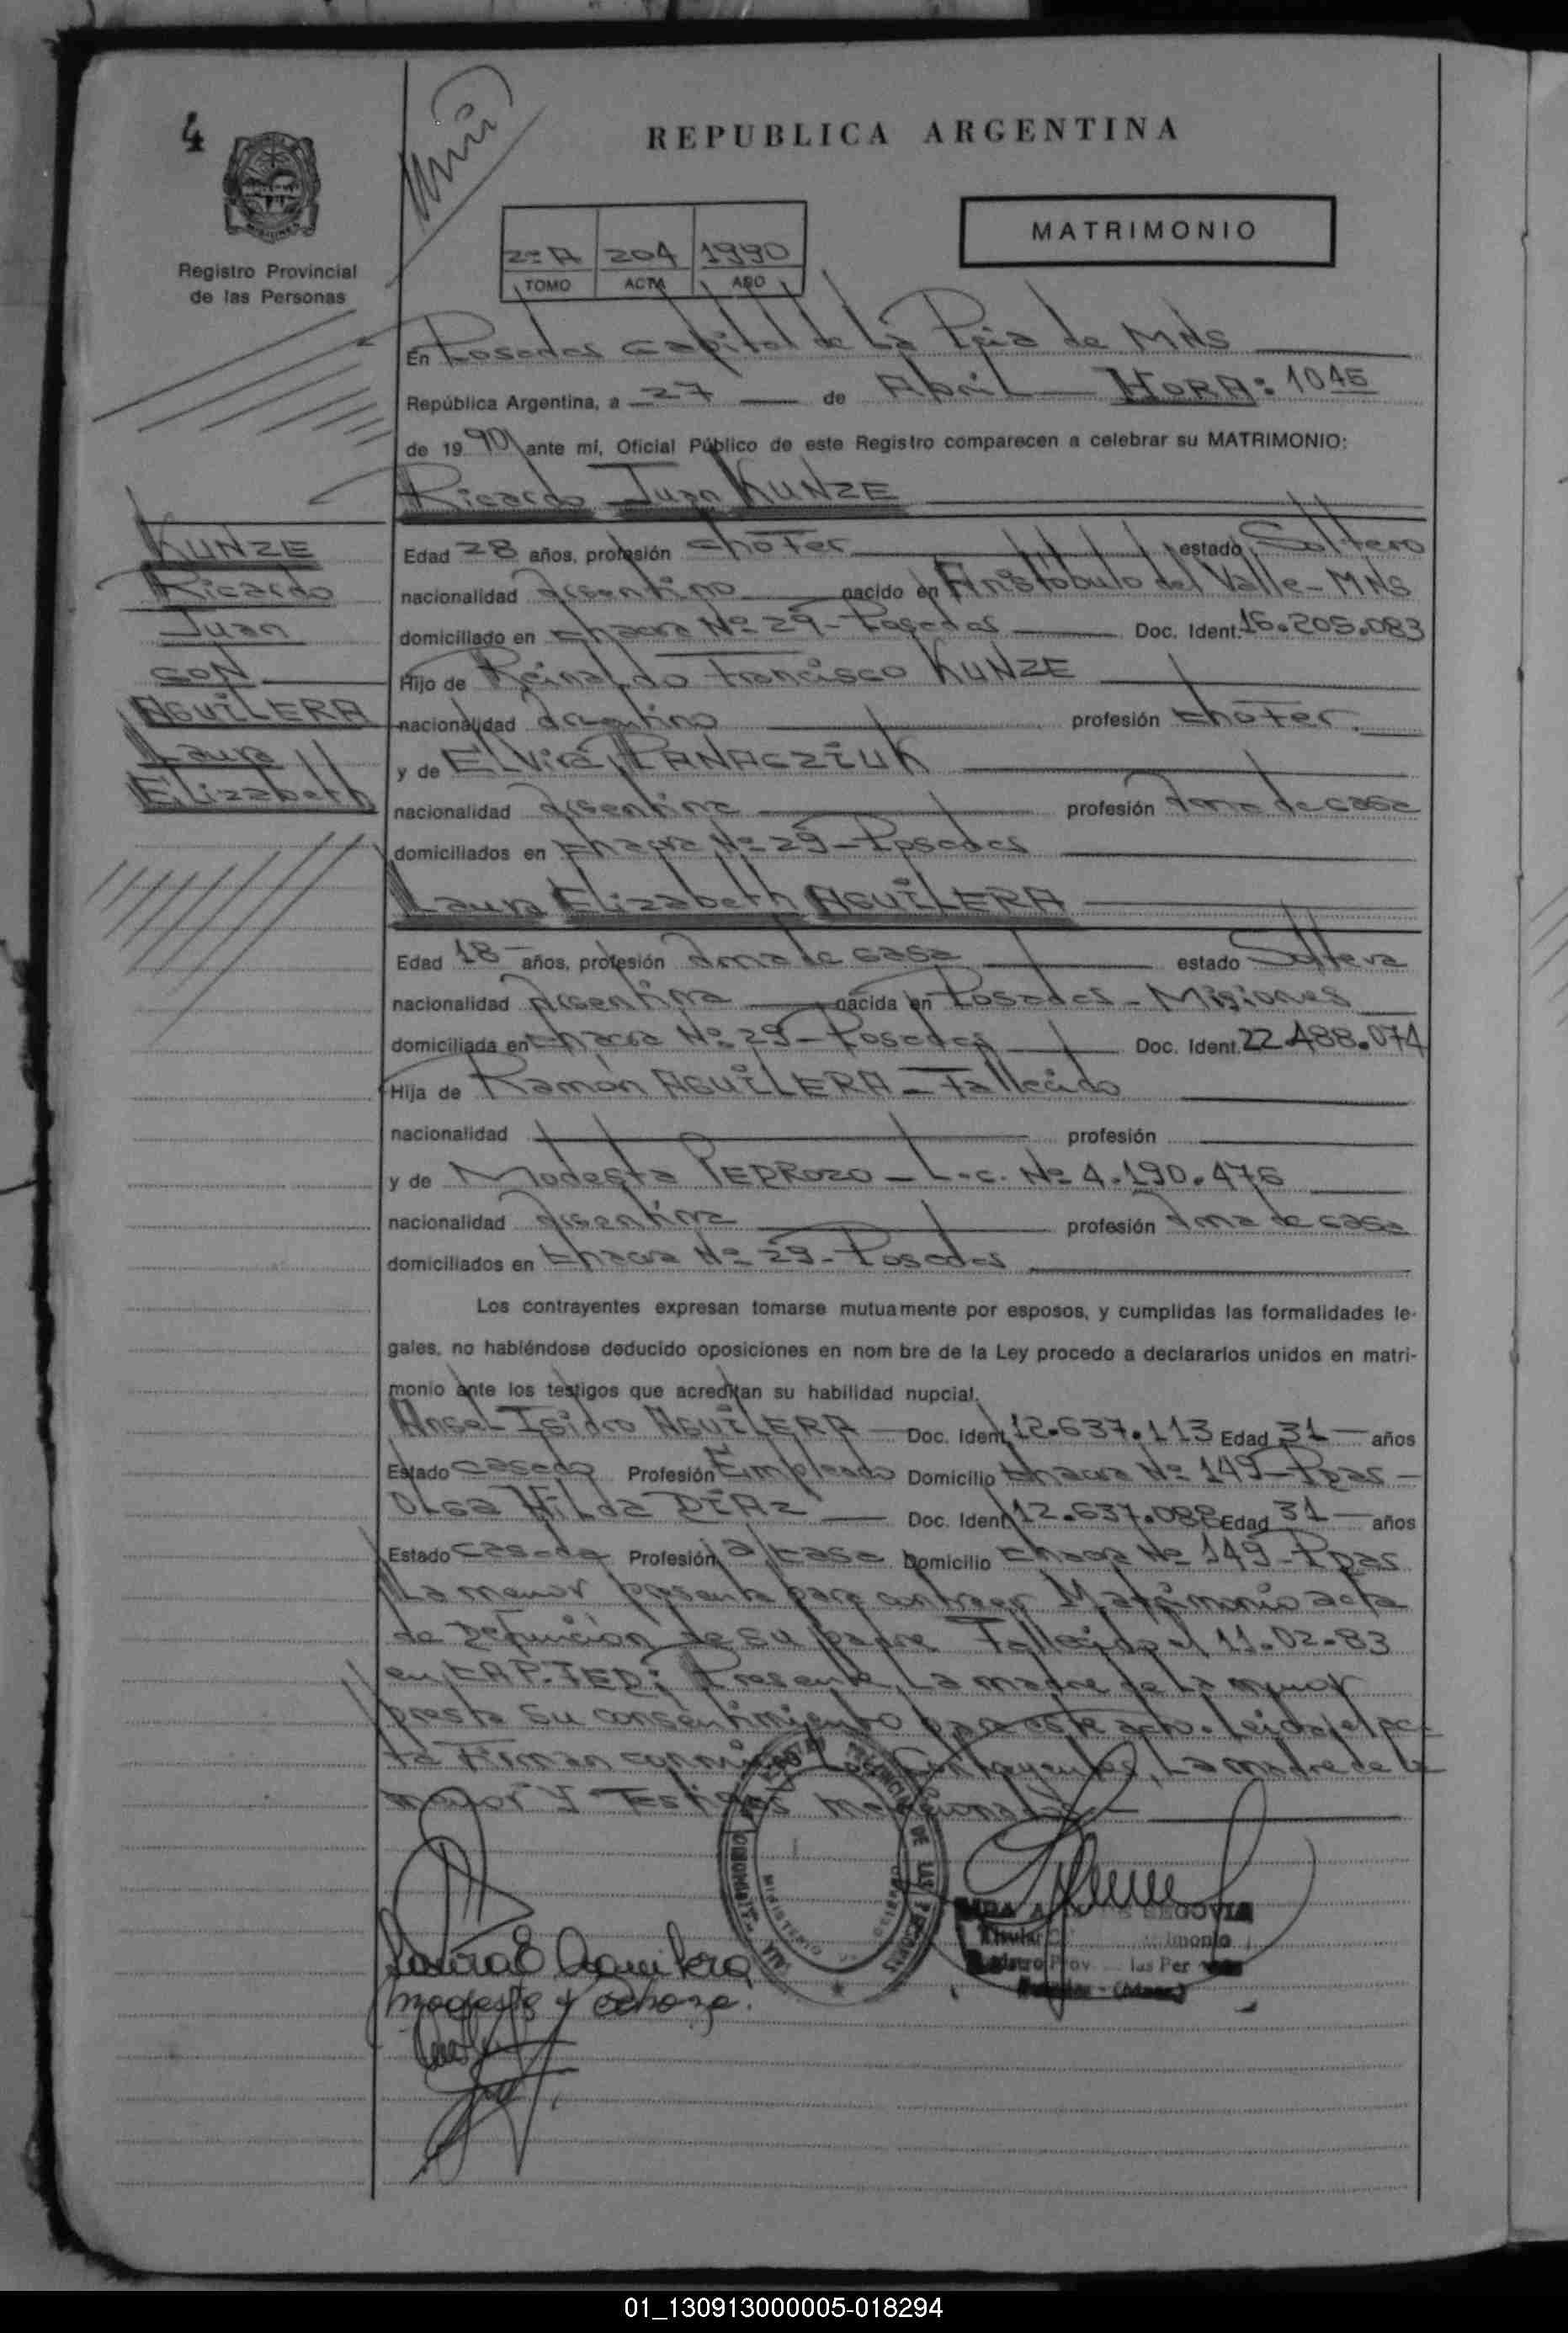 4
REPUBLICA ARGENTINA
MATRIMONIO
Registro Provincial
de las Personas
2º A 204 1990
TOMO ACTA AÑO
En Posadas Capital de La Pcia de MNS
República Argentina, a 27 de Abril HORA: 1045
de 1990 ante mí, Oficial Público de este Registro comparecen a celebrar su MATRIMONIO:
Ricardo Juan KUNZE
KUNZE
Ricardo
Juan
CON
AGUILERA
Laura
Elizabeth
Edad 28 años, profesión chofer estado Soltero
nacionalidad Argentino nacido en Aristóbulo del Valle - MNS
domiciliado en chacra Nº 29 - Posadas Doc. Ident. 16.205.083
Hijo de Reinaldo Francisco KUNZE
nacionalidad Argentino profesión chofer
y de Elvira PANACZIUK
nacionalidad Argentina profesión Ama de casa
domiciliados en chacra Nº 29 - Posadas
Laura Elizabeth AGUILERA
Edad 18 años, profesión Ama de casa estado Soltera
nacionalidad Argentina nacida en Posadas - Misiones
domiciliada en chacra Nº 29 - Posadas Doc. Ident. 22.488.074
Hija de Ramón AGUILERA - Fallecido
nacionalidad profesión
y de Modesta PEDROZO - L.c. Nº 4.190.476
nacionalidad Argentina profesión Ama de casa
domiciliados en chacra Nº 29 - Posadas
Los contrayentes expresan tomarse mutuamente por esposos, y cumplidas las formalidades le-
gales, no habiéndose deducido oposiciones en nom bre de la Ley procedo a declararlos unidos en matri-
monio ante los testigos que acreditan su habilidad nupcial.
Angel Isidro AGUILERA Doc. Ident. 12.637.113 Edad 31 años
Estado casado Profesión Empleado Domicilio chacra Nº 149 - Ppas -
Olga Hilda DIAZ Doc. Ident. 12.637.088 Edad 31 años
Estado casada Profesión a/casa Domicilio chacra Nº 149 - Ppas
La menor presenta para contraer Matrimonio acta
de Defunción de su padre Fallecido el 11-02-83
en Presente La madre de La menor
presta su consentimiento para este acto. Leída el ac-
ta Firman conmigo Los Contrayentes, La madre de la
menor y Testigos mencionados
Laura E Aguilera
SEGOVIA
Titular
imonio
Prov las Per
01_130913000005-018294